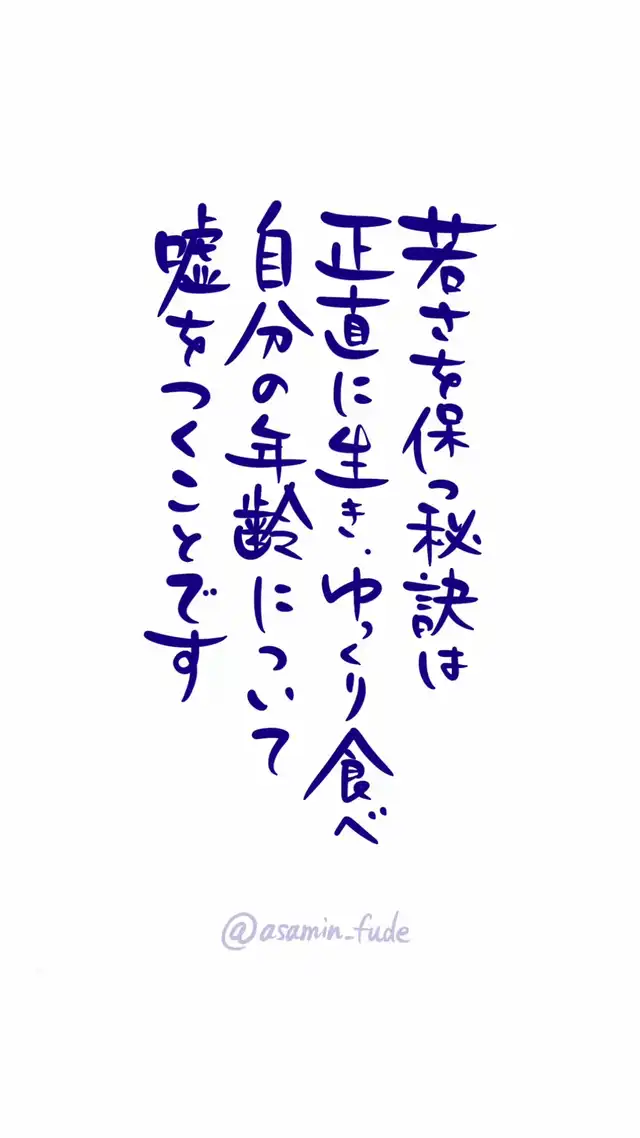 若さを保つ秘訣は
正直に生き、ゆっくり食べ
自分の年齢について
嘘をつくことです
@asamin_fude